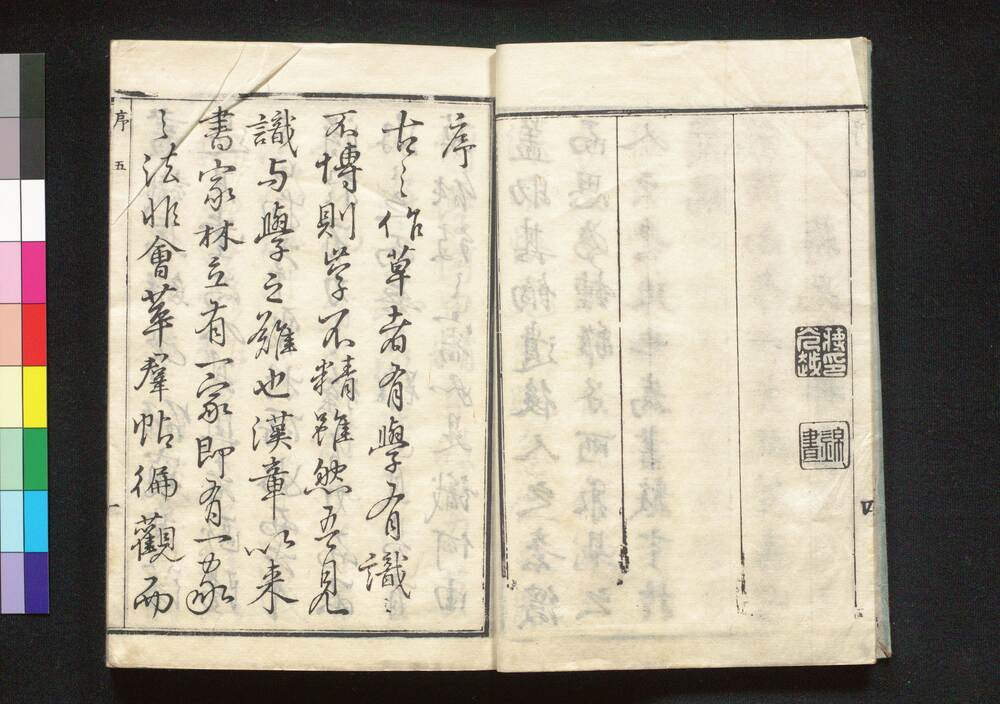 序
古之作草者有學有識〻
不博則学不精雖然吾見
識与學之難也漢章以来
書家林立有一家即有一家
之法非會萃羣帖徧觀而
序 五 一